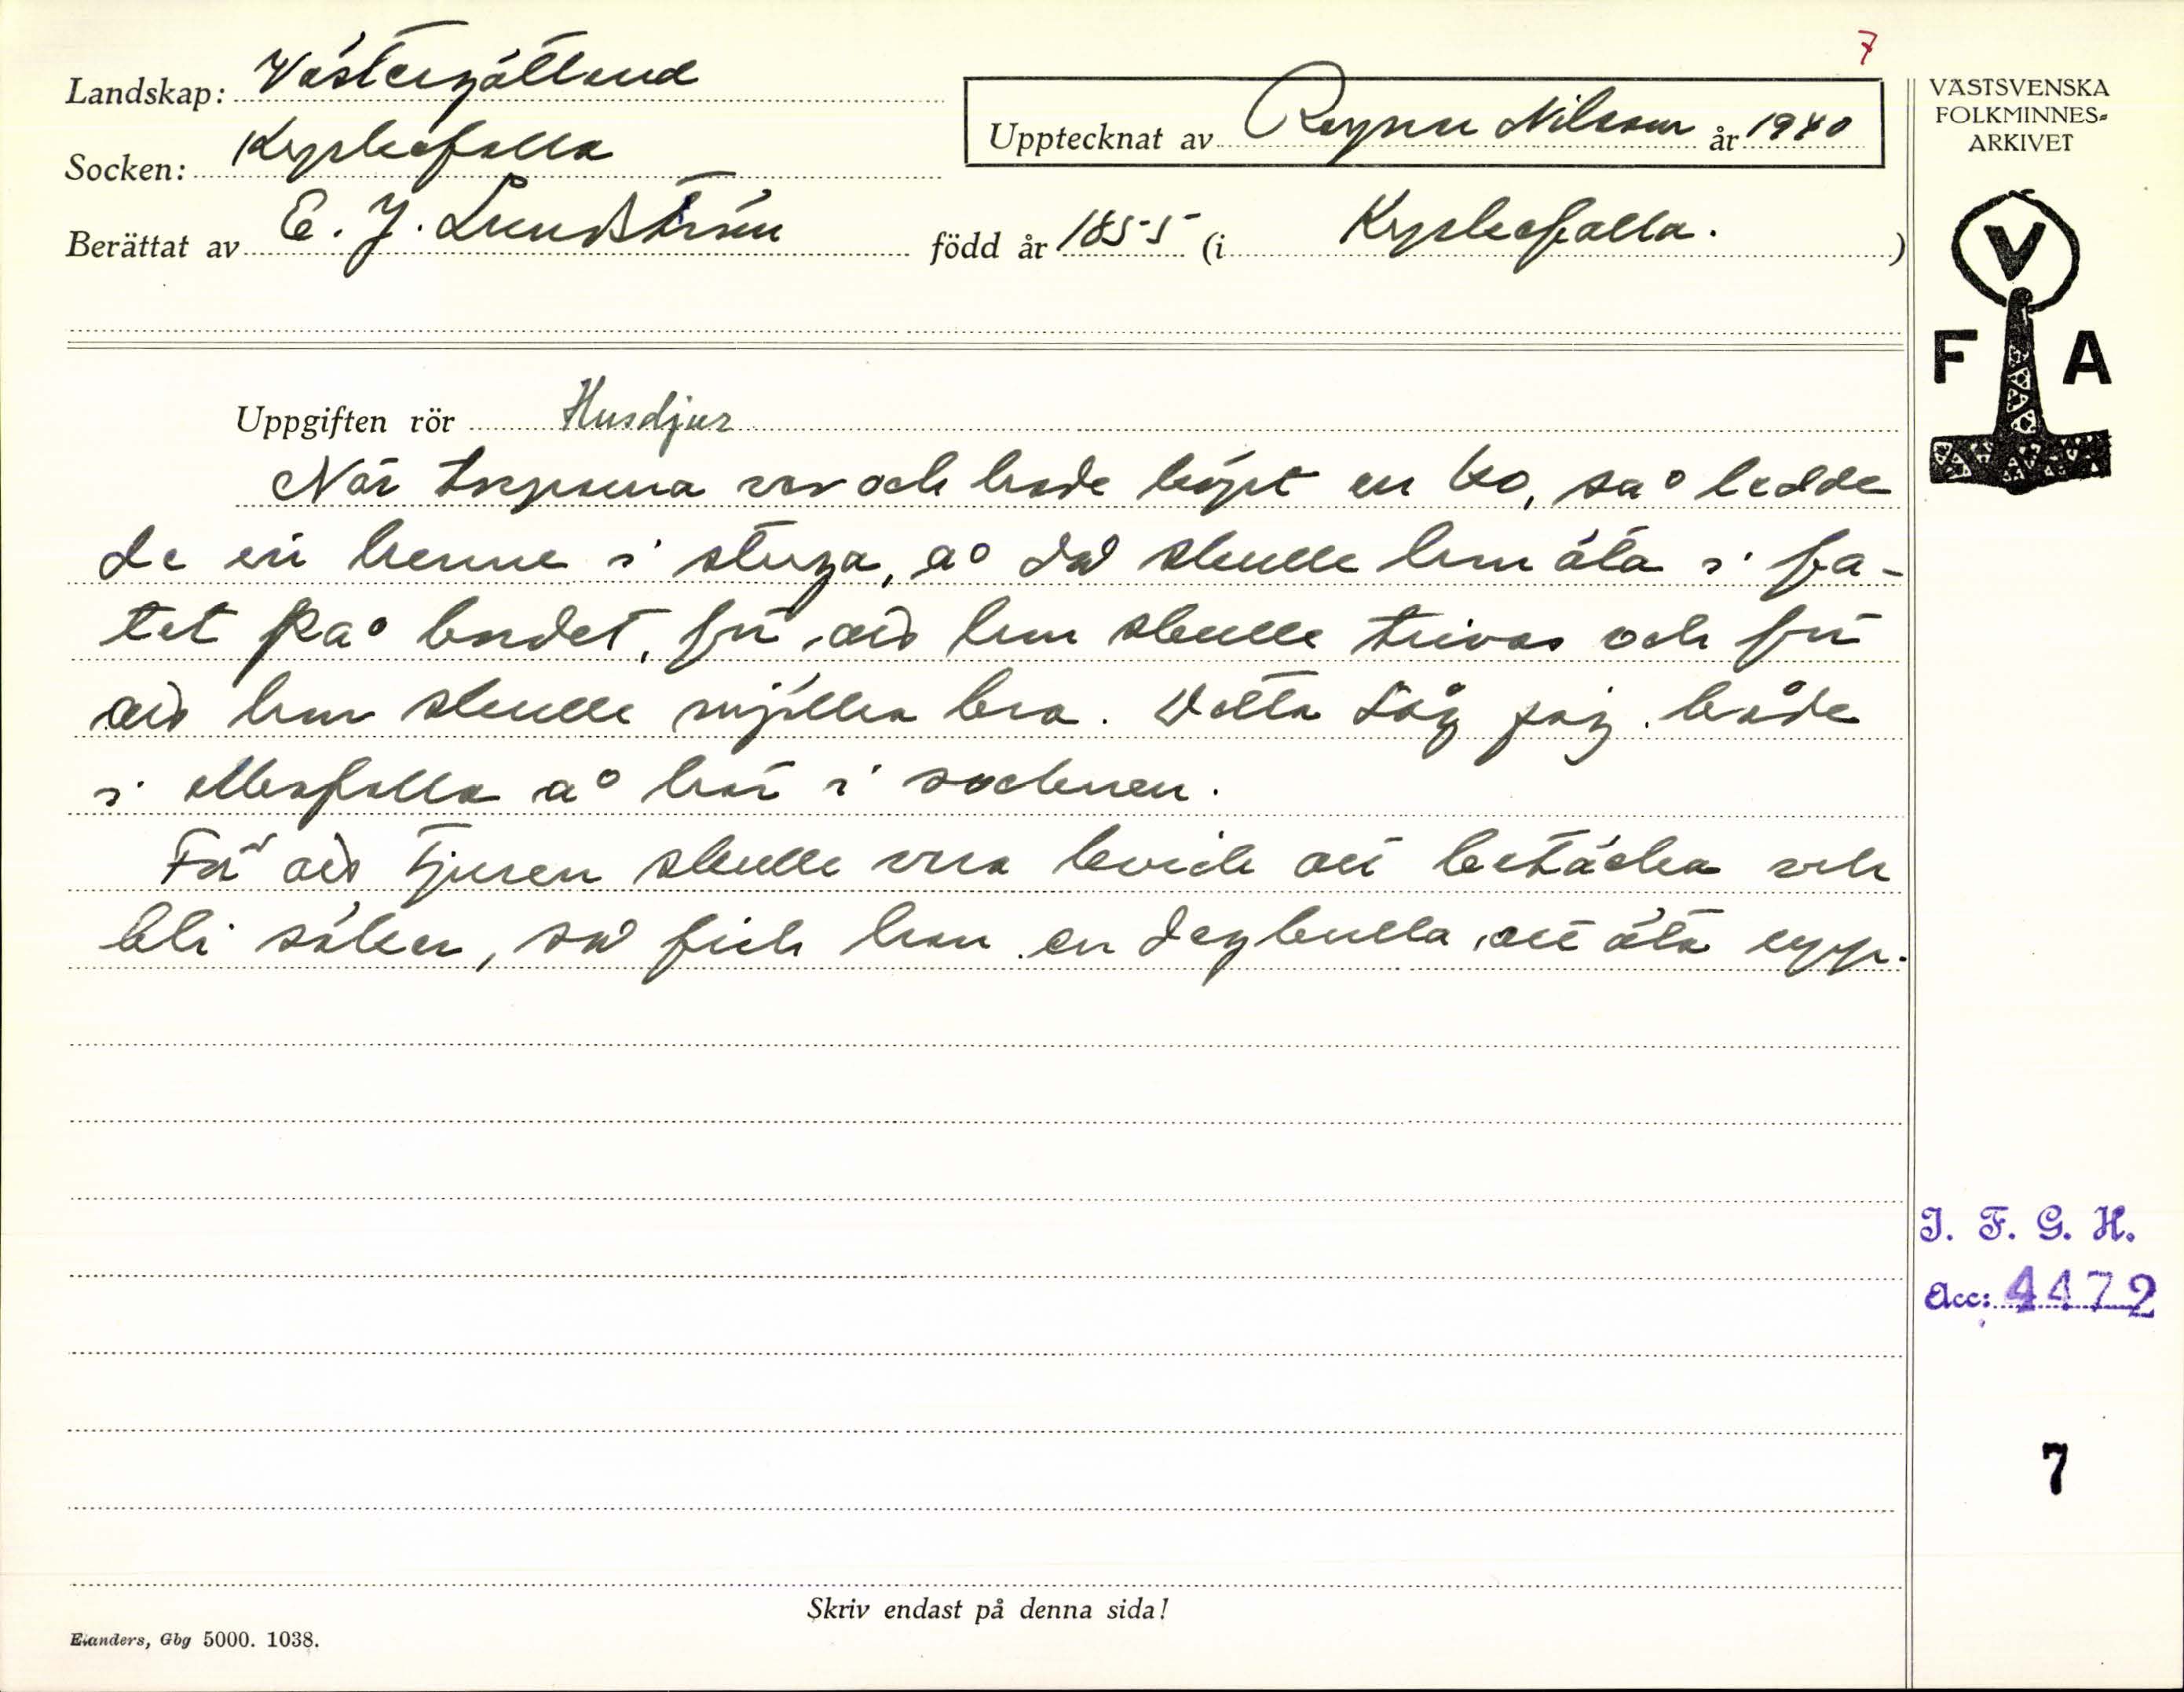 7
Landskap: Västergötland
Socken: Kyrkefalla
Upptecknat av Ragnar Nilsson år 1940
Berättat av E. J. Lundström född år 1855 (i Kyrkefalla. )
VÄSTSVENSKA
FOLKMINNES-
ARKIVET
V
F A
Uppgiften rör Husdjur
När torparna var och hade köpt en ko, så ledde
de in henne i stuga, å då skulle hon äta i fa-
tet på bordet, för att hon skulle trivas och för
att hon skulle mjölka bra. Detta såg jag både
i Mofalla å här i socknen.
För att tjuren skulle vara kvick att betäcka och
bli säker, så fick han en degbulla att äta upp.
I. F. G. H.
Acc: 4472
7
Skriv endast på denna sida!
Elanders, Gbg 5000. 1038.